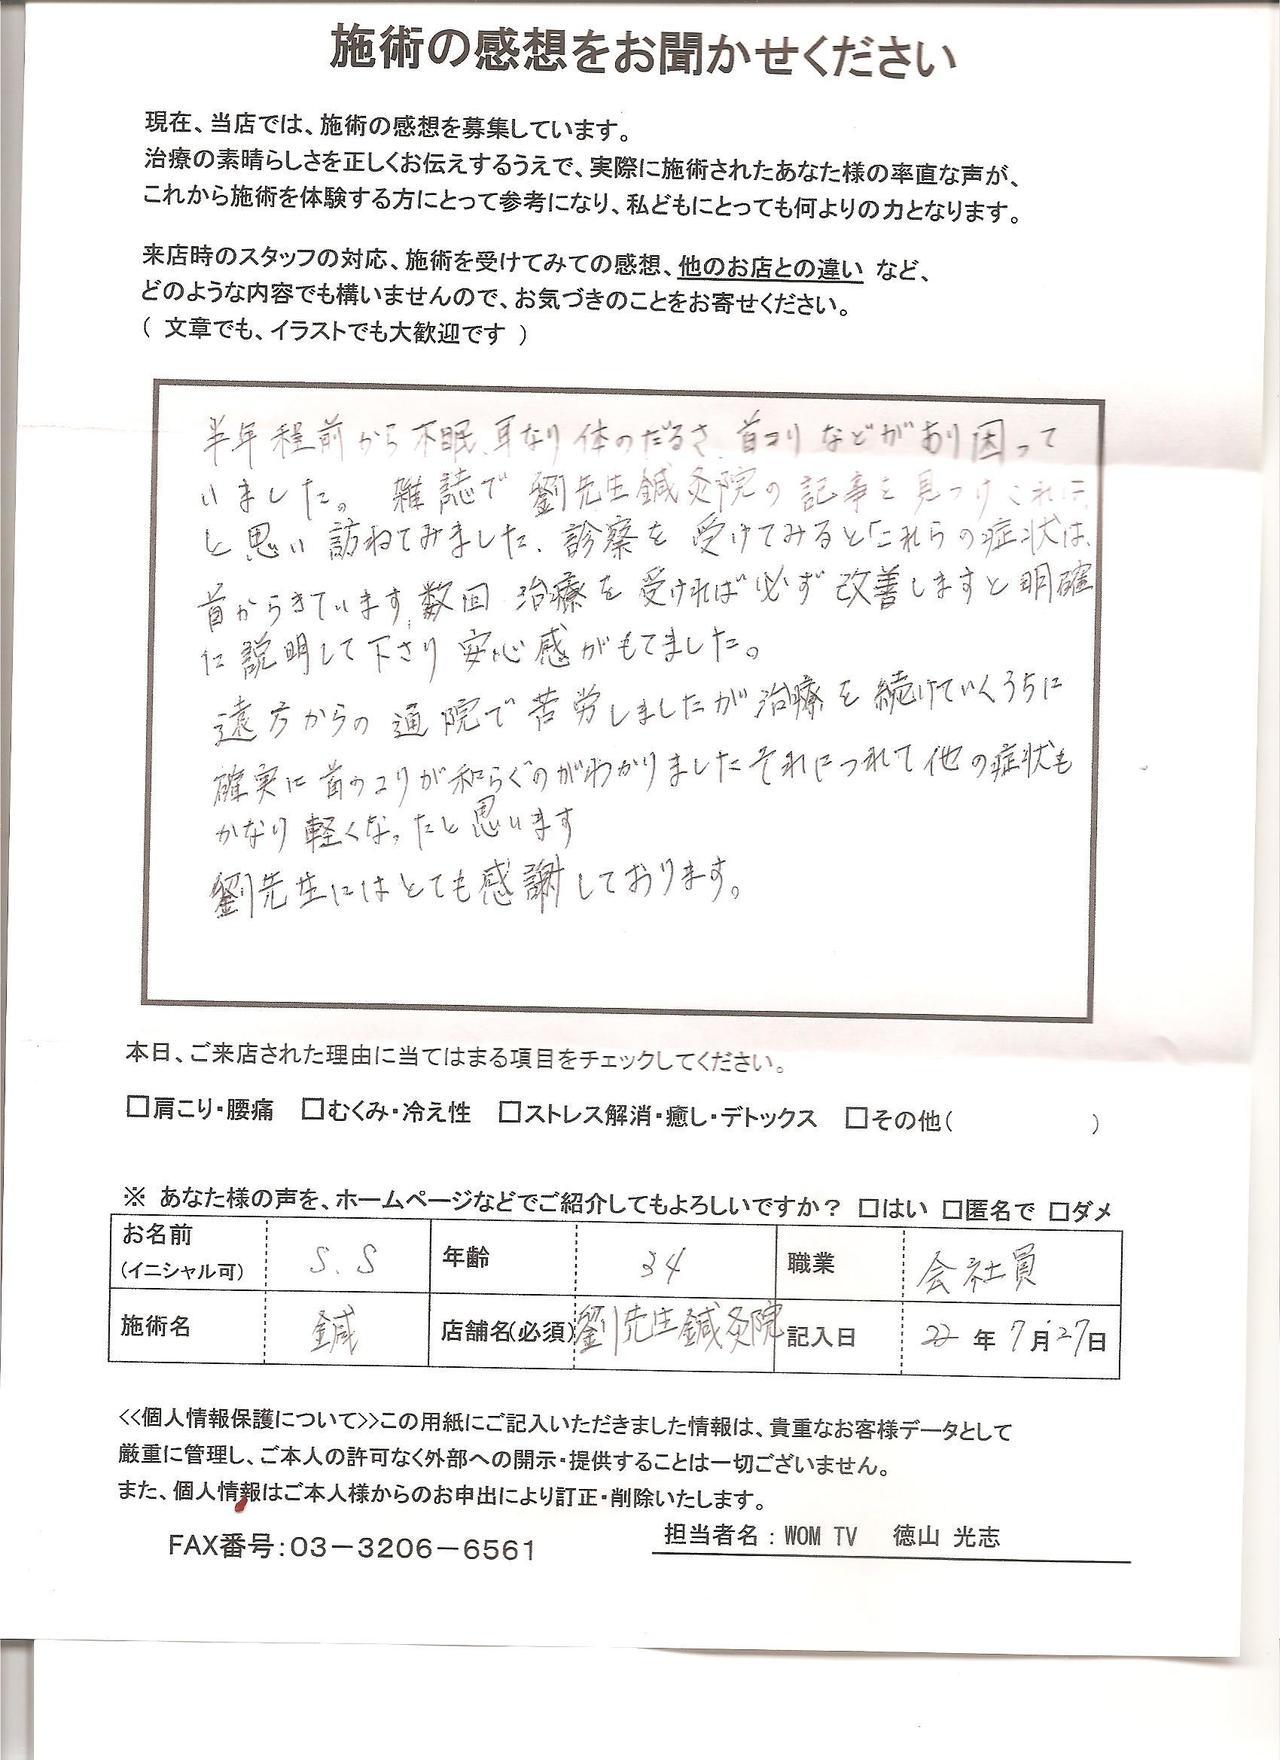 施術の感想をお聞かせください
現在、当店では、施術の感想を募集しています。
治療の素晴らしさを正しくお伝えするうえで、実際に施術されたあなた様の率直な声が、
これから施術を体験する方にとって参考になり、私どもにとっても何よりの力となります。
来店時のスタッフの対応、施術を受けてみての感想、他のお店との違い など、
どのような内容でも構いませんので、お気づきのことをお寄せください。
( 文章でも、イラストでも大歓迎です )
半年程前から不眠、耳なり体のだるさ、首コリなどがあり困って
いました。雑誌で劉先生鍼灸院の記事を見つけこれは
と思い訪ねてみました、診察を受けてみると「これらの症状は、
首からきています、数回治療を受ければ必ず改善しますと明確
に説明して下さり安心感がもてました。
遠方からの通院で苦労しましたが治療を続けていくうちに
確実に首のコリが和らぐのがわかりましたそれにつれて他の症状も
かなり軽くなったと思います
劉先生にはとても感謝しております。
本日、ご来店された理由に当てはまる項目をチェックしてください。
□肩こり・腰痛 □むくみ・冷え性 □ストレス解消・癒し・デトックス □その他( )
※ あなた様の声を、ホームページなどでご紹介してもよろしいですか? □はい □匿名で □ダメ
お名前 (イニシャル可) S.S 年齢 34 職業 会社員
施術名 鍼 店舗名(必須) 劉先生鍼灸院 記入日 22年7月27日
<<個人情報保護について>>この用紙にご記入いただきました情報は、貴重なお客様データとして
厳重に管理し、ご本人の許可なく外部への開示・提供することは一切ございません。
また、個人情報はご本人様からのお申出により訂正・削除いたします。
FAX番号:03-3206-6561
担当者名：WOM TV 徳山 光志